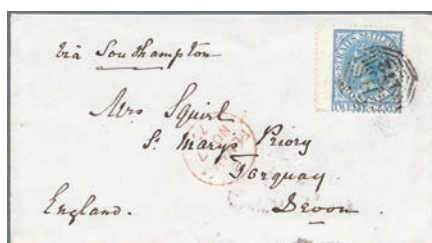 via Southampton
STRAITS SETTLE
Mrs Squirl
St Marys Priory
Torquay
England.
Devon